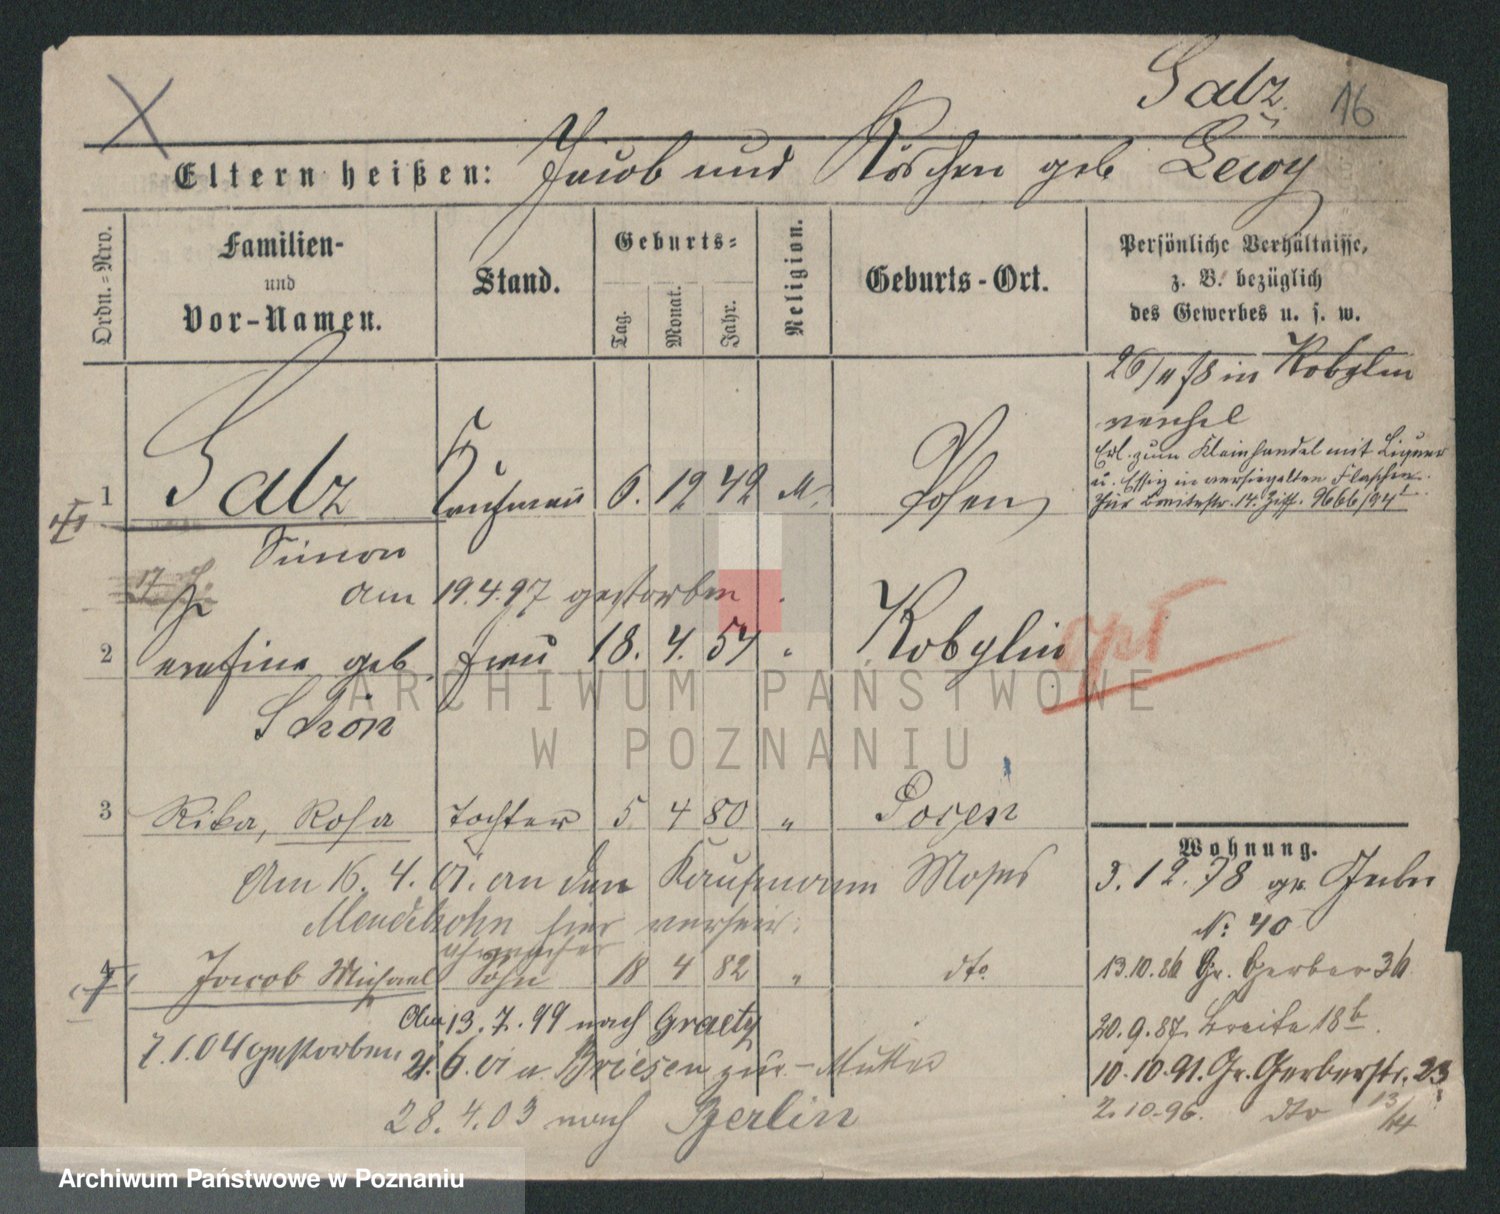 Salz
16
Eltern heißen: Jacob und Röschen geb Lewy
Ordn.-Nro.
Familien- und Vor-Namen.
Stand.
Geburts-
Tag. Monat. Jahr.
Religion.
Geburts-Ort.
Persönliche Verhältnisse,
z. B. bezüglich
des Gewerbes u. s. w.
26/11 78 in Kobylin
Erl. zum Kleinhandel mit Liquer
u. Essig in versiegelten Flaschen
für Breitestr. 14. 9666/94
1 Salz Kaufmann 6. 12 42 M. Posen
Simon
am 19.4.97 gestorben.
2 geb. Frau 18. 4. 54 " Kobylin
Schön
opt
3 Rika, Rosa Tochter 5. 4 80 " Posen
Am 16. 4. 01. an den Kaufmann Moses
Mendelsohn hier verheir.
4 Jacob Michael Sohn 18 4 82 " dto
Am 13.7.99 nach Graetz
7.1.04 gestorben
21.6.01 a. Briesen zur Mutter
28.4.03 nach Berlin
Wohnung.
3.12.78 gr. Gerber
N: 40
13.10.86 Gr. Gerber 36
20.9.87 Breite 18b.
10.10.91. Gr. Gerberstr. 23
2.10.96. dto 13/14
ARCHIWUM PAŃSTWOWE
W POZNANIU
Archiwum Państwowe w Poznaniu